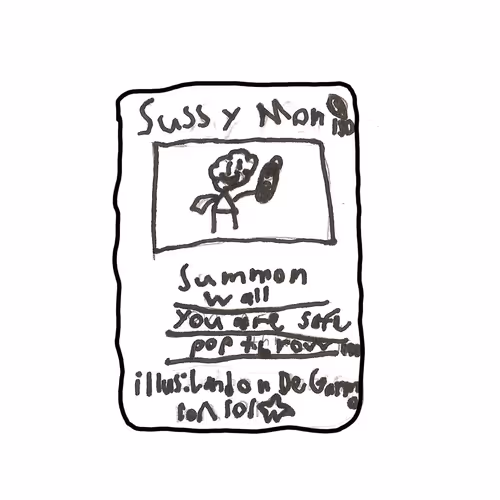 Sussy Mon
130
Summon
wall
You are safe
pop throw
illus: Landon DeGarmo
101/101